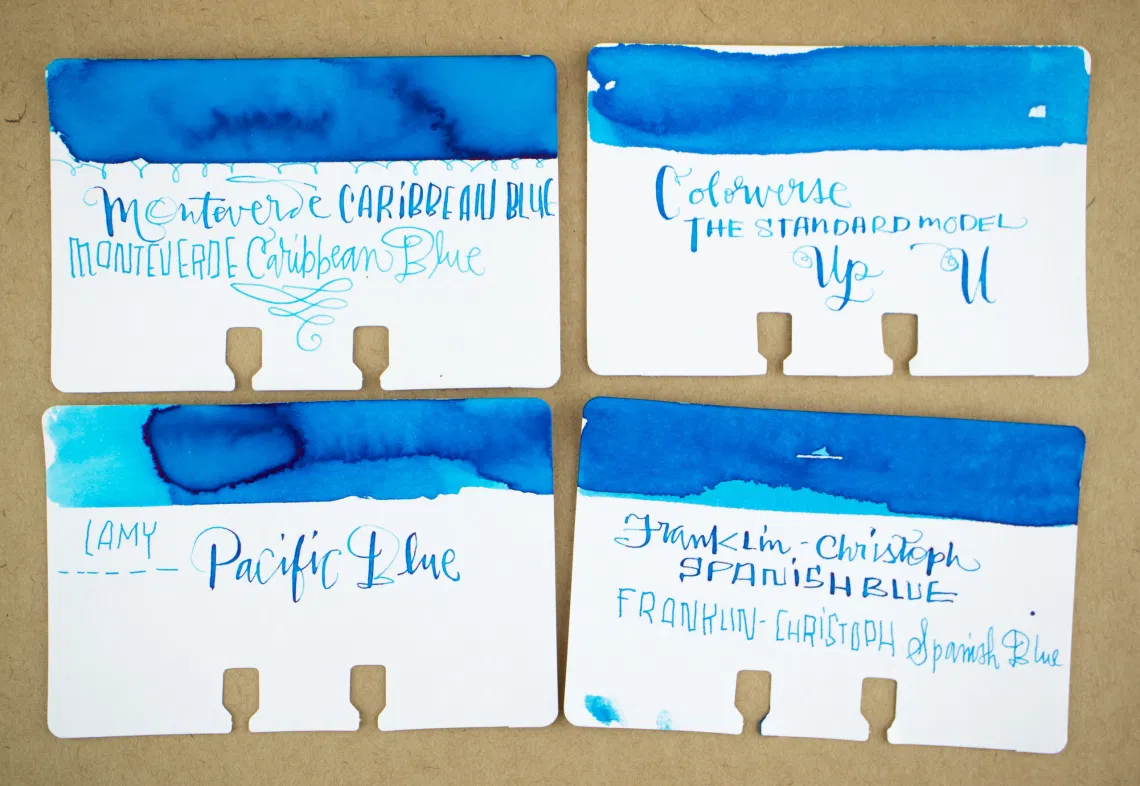 Monteverde CARiBBEAN BLUE
MONTEVERDE Caribbean Blue
Colorverse
THE STANDARD MODEL
Up U
LAMY
Pacific Blue
Franklin-Christoph
SPANiSH BLUE
FRANKLIN-CHRiSTOPH Spanish Blue